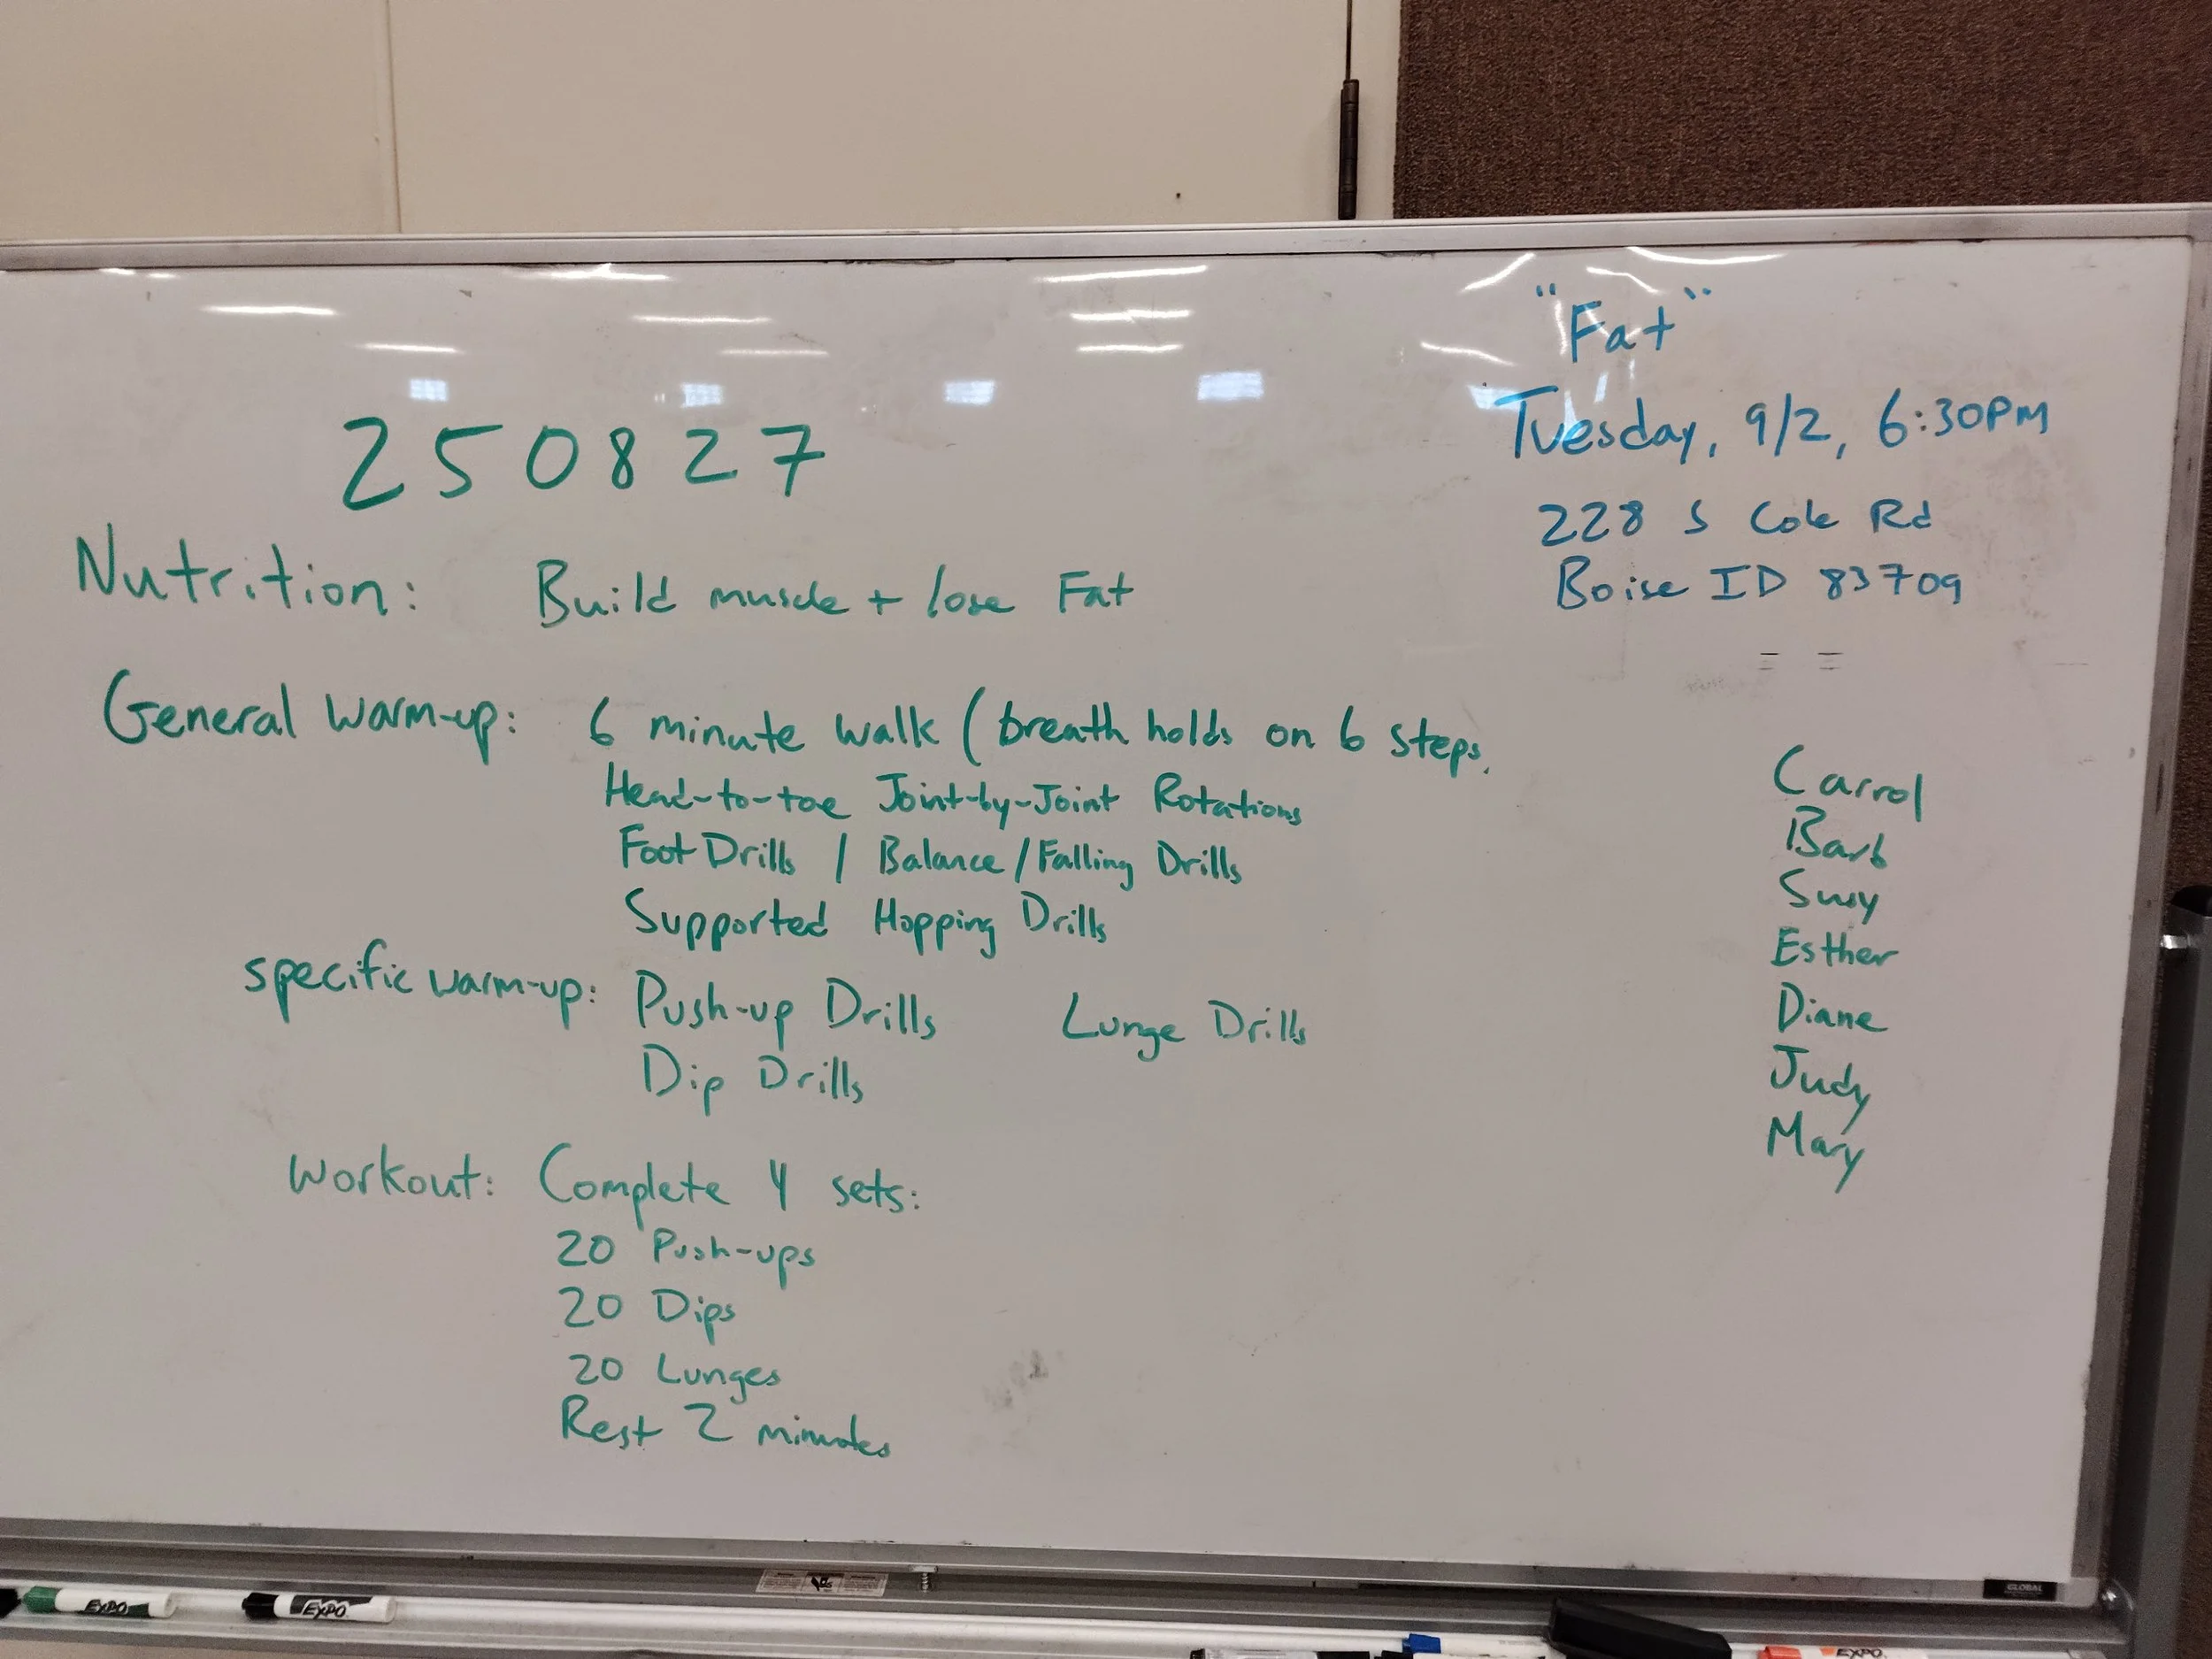 "Fat"
Tuesday, 9/2, 6:30PM
228 S Cole Rd
Boise ID 83709
250827
Nutrition: Build muscle + lose Fat
General warm-up: 6 minute walk (breath holds on 6 steps.
Head-to-toe Joint-by-Joint Rotations
Foot Drills / Balance/Falling Drills
Supported Hopping Drills
specific warm-up: Push-up Drills Lunge Drills
Dip Drills
Workout: Complete 4 sets:
20 Push-ups
20 Dips
20 Lunges
Rest 2 minutes
Carrol
Barb
Susy
Esther
Diane
Judy
Mary
GLOBAL
EXPO
EXPO
EXPO